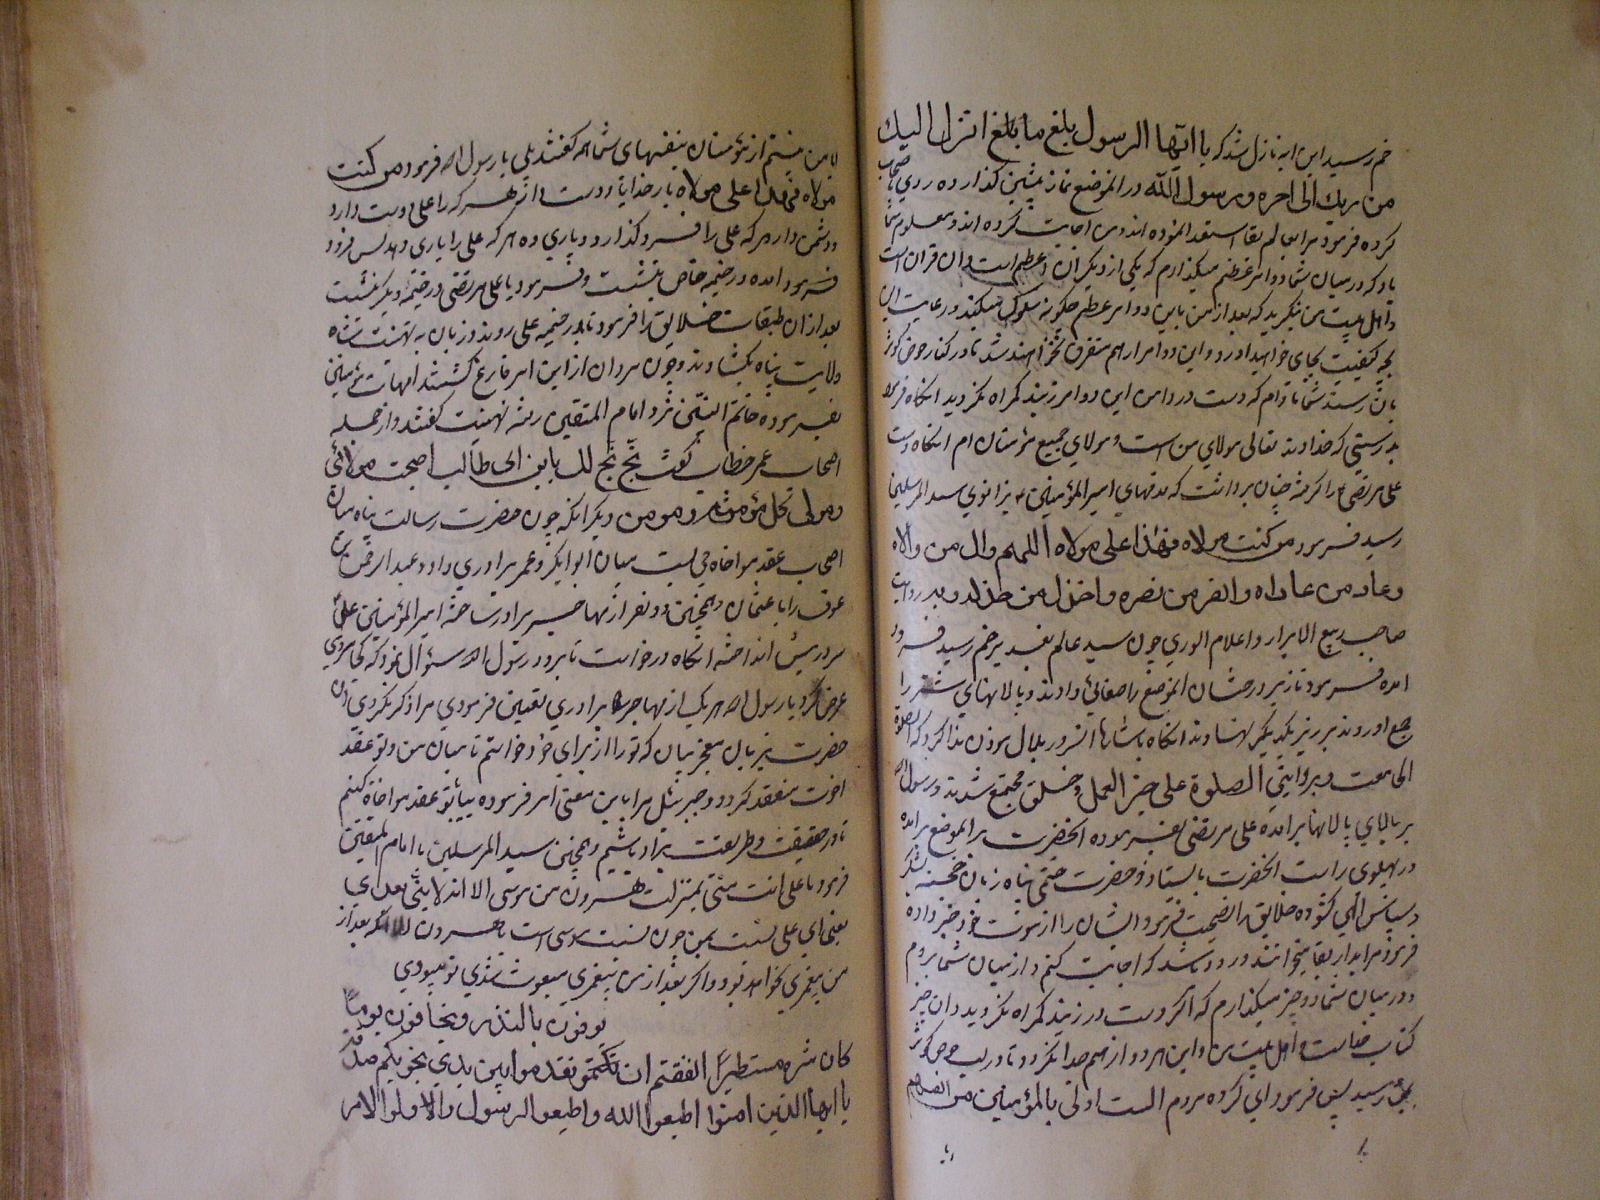 خم رسید این ایه نازل شد که یا ایها الرسول بلغ ما بلغ انزل الیک
من ربک الی اخره و رسول الله در الموضع نماز پیشین کذارده روی باصحاب
کرده فرمود مرا بعالم بقا استدعا نموده اند و من اجابت کرده اند و معلوم شما
باد که در میان شما دو امر عظیم میکذارم که یکی از دیکری اعظم است و ان قران است
و اهل بیت من بنکرید که بعد از من باین دو امر عظیم چکونه سلوک میکنید و رعایت ان
بچه کیفیت بجای خواهید اورد و این دو امر از هم متفرق نخواهند شد تا در کنار حوض کوثر
بمن رسند شما مادام که دست در دامن این دو امر زنید کمراه نکردید انکاه فرمود
بدرستی که خداوند تعالی مولای من است و مولای جمیع مؤمنان ام انکاه دست
علی مرتضی را کرفته چنان برداشت که قدمهای امیر المؤمنین بزانوی سید المرسلین
رسید فرمود من کنت مولاه فهذا علی مولاه اللهم وال من والاه
و عاد من عاداه و انصر من نصره و اخذل من خذله و بروایت
صاحب ربیع الابرار و اعلام الوری چون سید عالم بغدیر خم رسید فرود
امده فرمود تا زیر درختان الموضع را صفائی دادند و پالانهای شتر را
جمع اوردند بر زبر یکدیکر نهادند انکاه باشاره انسرور بلال موذن ندا کرد که الصلوة
الجامعت و بروایتی الصلوة علی خیر العمل و خلق مجتمع شدند و رسول الله
بر بالای پالانها برامده علی مرتضی بفرموده انحضرت بر الموضع برامده
در پهلوی راست انحضرت بایستاد و حضرت ختمی پناه زبان خجسته بشکر
و سپاس الهی کشوده خلایق را نصیحت فرمود ایشان را از موت خود خبر داده
فرمود مرا بدار بقا میخوانند و زود باشد که اجابت کنم و از میان شما بروم
و در میان شما دو چیز میکذارم که اکر دست در زنید کمراه نکردید و ان چیز
کتاب خداست و اهل بیت من و این هر دو از هم جدا نکردد تا در لب حوض کوثر
بمن رسید پس فرمود ای کروه مردم الست اولی بالمؤمنین من انفسهم
ایا من نیستم از مؤمنان بنفسهای شما همه کفتند بلی یا رسول الله فرمود من کنت
مولاه فهذا علی مولاه بار خدایا دوست دار هر که را علی دوست دارد
و دشمن دار هر که علی را فرو کذارد و یاری ده هر که علی را یاری دهد پس فرود
فرمود امده در خیمه خاص بنشست و فرمود یا علی مرتضی در خیمه دیکر بنشست
بعد از ان طبقات خلایق را فرمود تا بدر خیمه علی روند و زبان به تهنیت شاه
ولایت پناه بکشاوند و چون مردان از این امر فارغ کشتند امهات مؤمنین
بفرموده خاتم النبیین نزد امام المتقین رفته تهنیت کفتند و از جمله
اصحاب عمر خطاب کفت بخ بخ لک یا بن ابی طالب اصبحت مولائی
و مولی کل مؤمن و مومن دیکر انکه چون حضرت رسالت پناه میان
اصحاب عقد مواخاة می بست میان ابوابکر و عمر برادری داد و عبد الرحمن بن
عوف را با عثمان و همچنین دو نفر از مهاجر برادر ساخته امیر المؤمنین علی
سر در پیش انداخته انکاه درخواست تا برود رسول الله سؤال نمود که کجا میروی
عرض کرد یا رسول الله هر یک از مهاجر را برادری تعیین فرمودی مرا ذکر نکردی ان
حضرت بزبان معجز بیان که تو را از برای خود خواستم تا میان من و تو عقد
اخوت منعقد کردد و جبرئیل مرا باین معنی امر فرموده بیا بتو عقد مواخاة کنم
تا در حقیقت و طریقت برادر باشیم و همچنین سید المرسلین با امام المتقین
فرمود یا علی انت منی بمنزلت هرون من موسی الا انه لا نبی بعدی
یعنی ای علی نسبت بمن چون نسبت موسی است بهرون الا انکه بعد از
من پیغمری نخواهد بود و اکر بعد از من پیغمری مبعوث شدی تو میبودی
یوفون بالنذر و یخافون یوما
کان شره مستطیرا اشفقتم ان تقدموا بین یدی نجویکم صدقه
یا ایها الذین امنوا اطیعوا الله و اطیعوا الرسول و الاولوا الامر